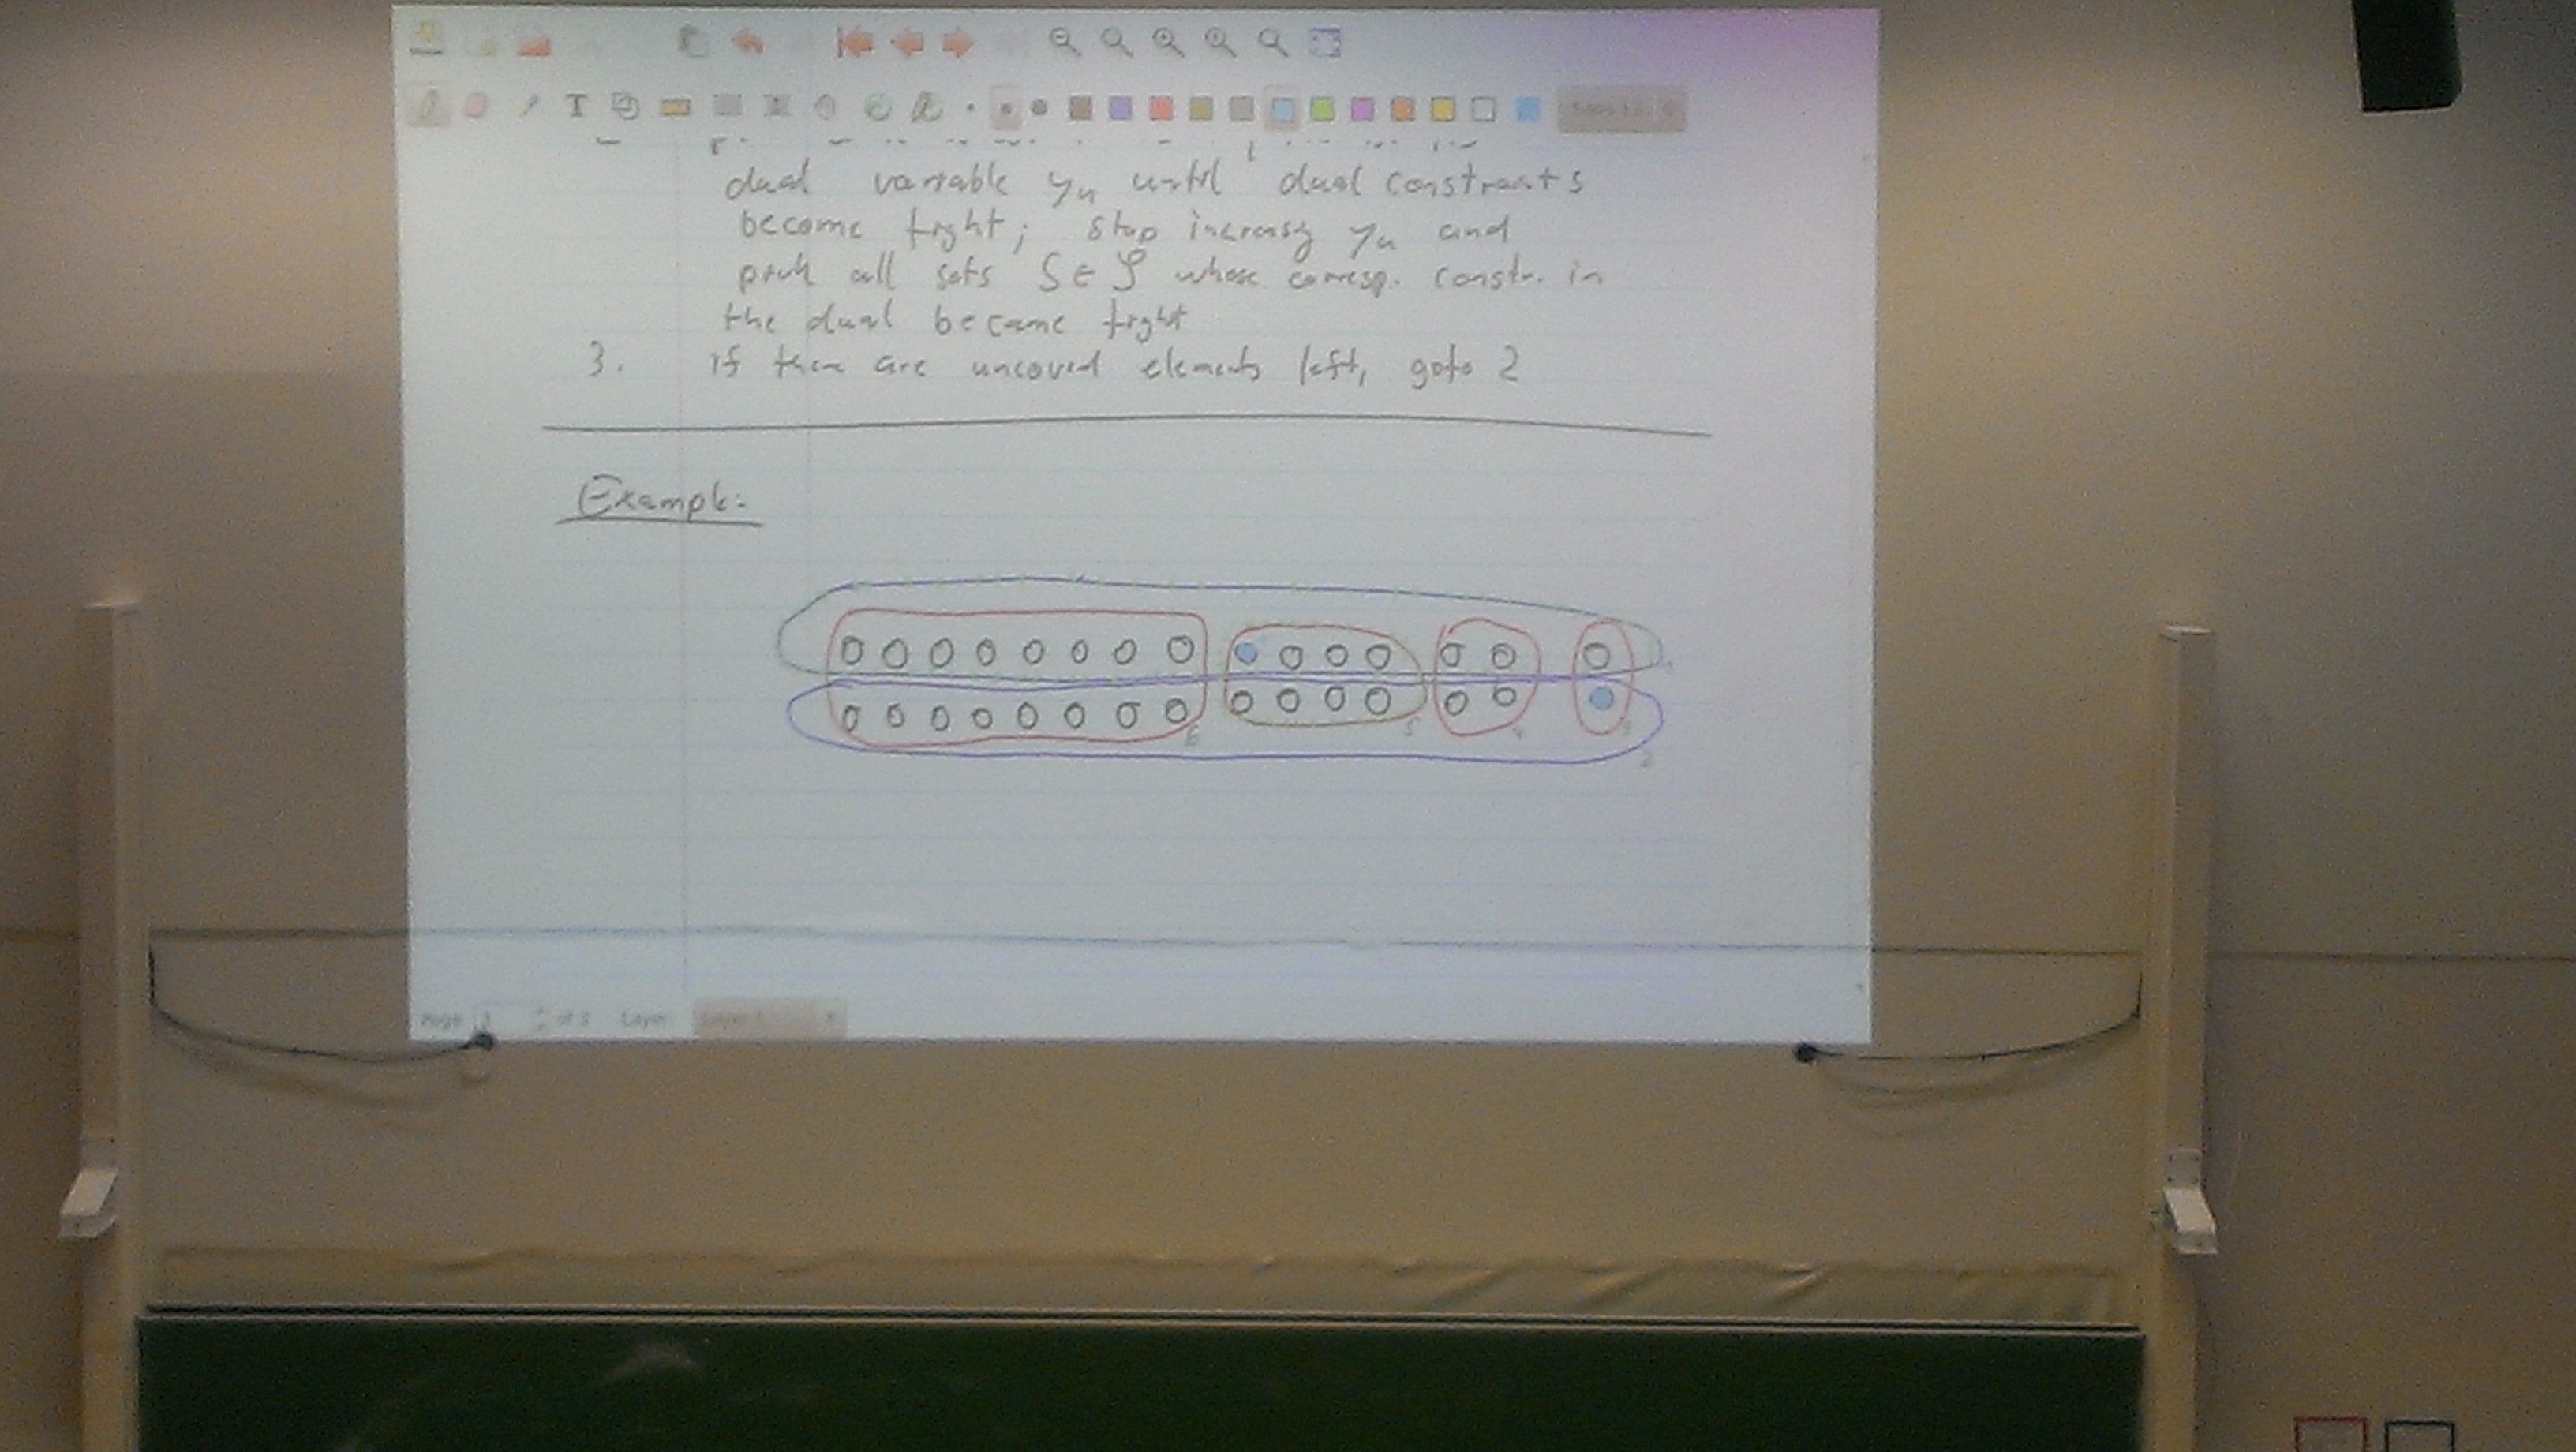 T
dual variable yu until dual constraints
become tight; stop increasing yu and
pick all sets S ∈ S whose corresp. constr. in
the dual became tight
3. if there are uncoverd elements left, goto 2
Example:
6 5 4 3
2
Page of 3 Layer: